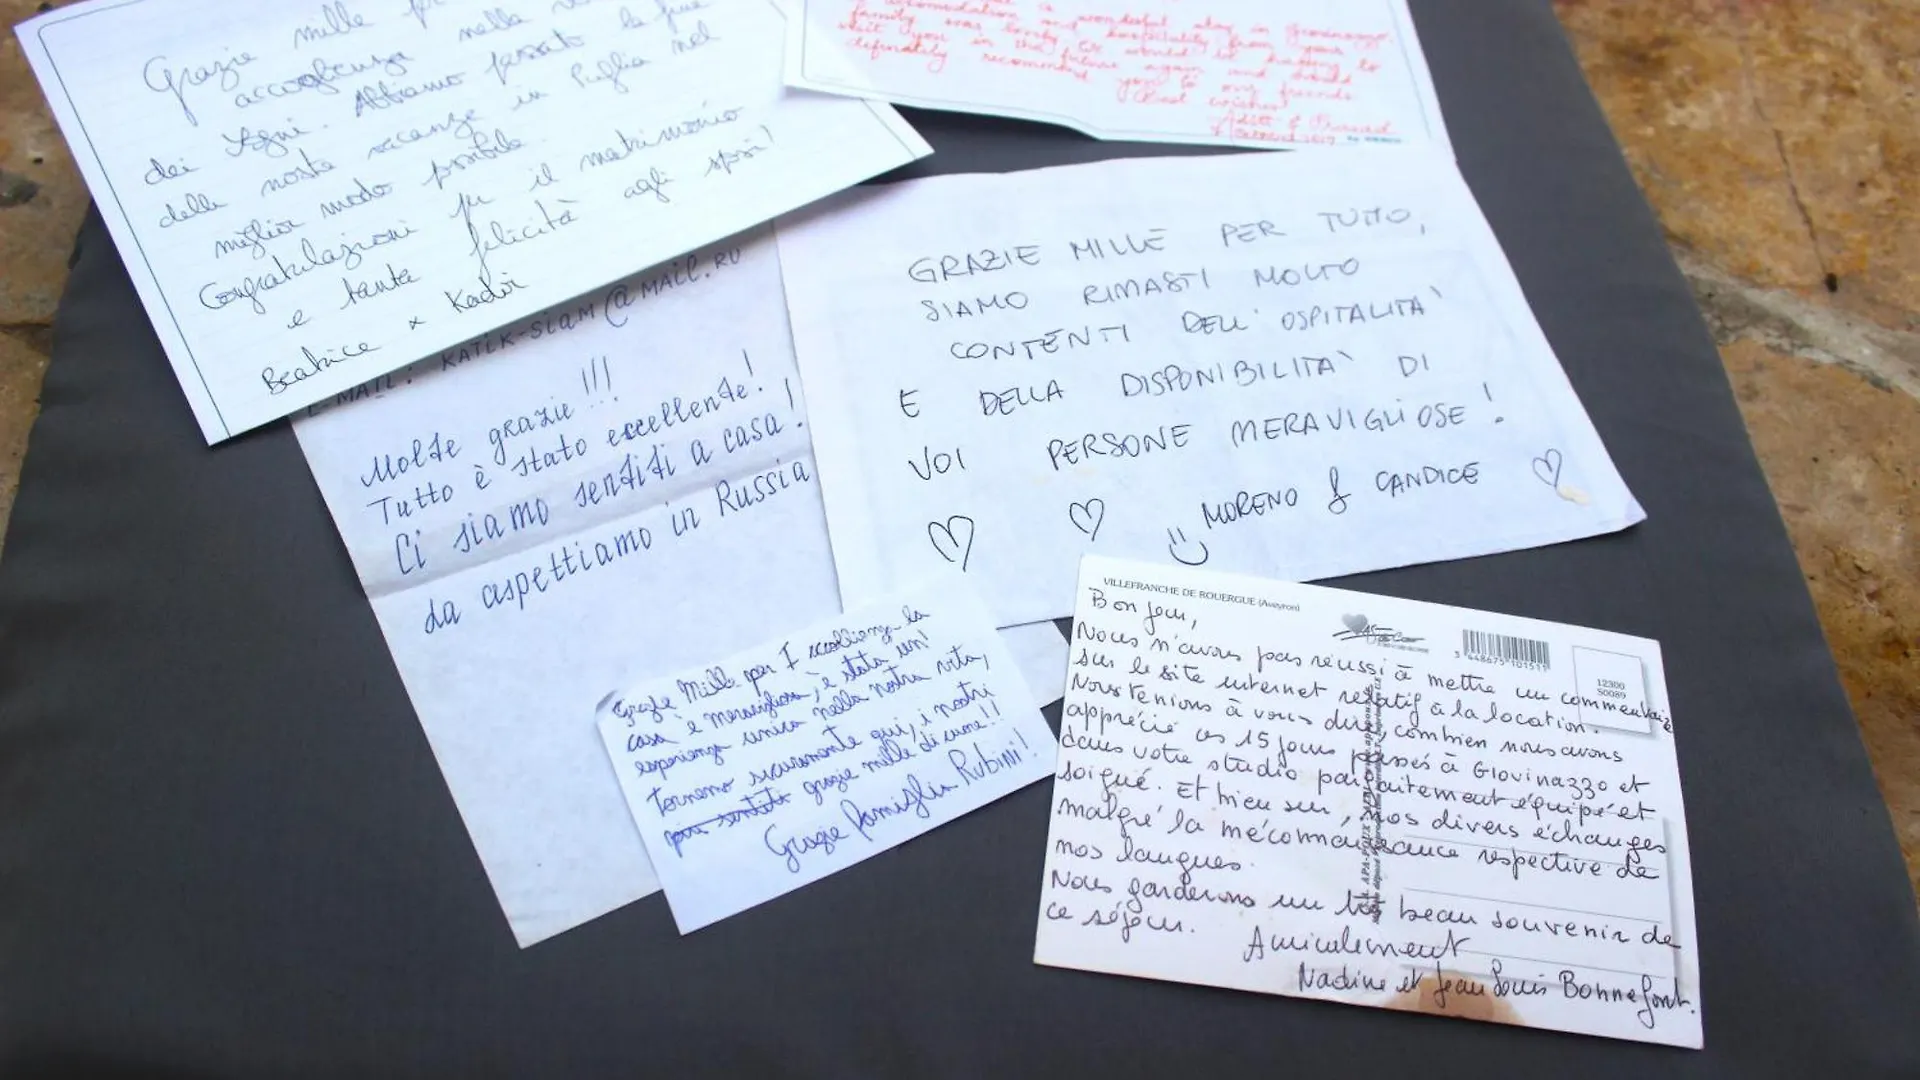 Grazie mille
accoglienza nella
dei sogni. Abbiamo passato la fine
delle nostre vacanze in Puglia nel
miglior modo possibile.
Congratulazioni per il matrimonio
e tanta felicità agli sposi!
Beatrice x Kadir
accomodation a wonderful stay in Giovinazzo.
family was lovely & hospitality from your
visit you in the future again and would
definately recommend you to our friends
Best wishes
E-MAIL: KATIK-SIAM@MAIL.RU
Molte grazie!!!
Tutto è stato eccellente!
Ci siamo sentiti a casa!
da aspettiamo in Russia
GRAZIE MILLE PER TUTTO,
SIAMO RIMASTI MOLTO
CONTENTI DELL'OSPITALITA'
E DELLA DISPONIBILITA' DI
VOI PERSONE MERAVIGLIOSE!
MORENO & CANDICE
Grazie Mille per l'accoglienza la
casa è meravigliosa, è stata un'
esperienza unica nella nostra vita,
torneremo sicuramente qui, i nostri
più sentiti grazie mille di cuore!!
Grazie famiglia Rubini!
VILLEFRANCHE DE ROUERGUE (Aveyron)
3 448675 101511
12300
S0089
Bonjour,
Nous n'avons pas réussi à mettre un commentaire
sur le site internet relatif à la location.
Nous tenions à vous dire combien nous avons
apprécié ces 15 jours passés à GIOVINAZZO et
dans votre studio parfaitement équipé et
soigné. Et bien sur, nos divers échanges
malgré la méconnaissance respective de
nos langues.
Nous garderons un très beau souvenir de
ce séjour.
Amicalement
Nadine et Jean Louis Bonnefont.